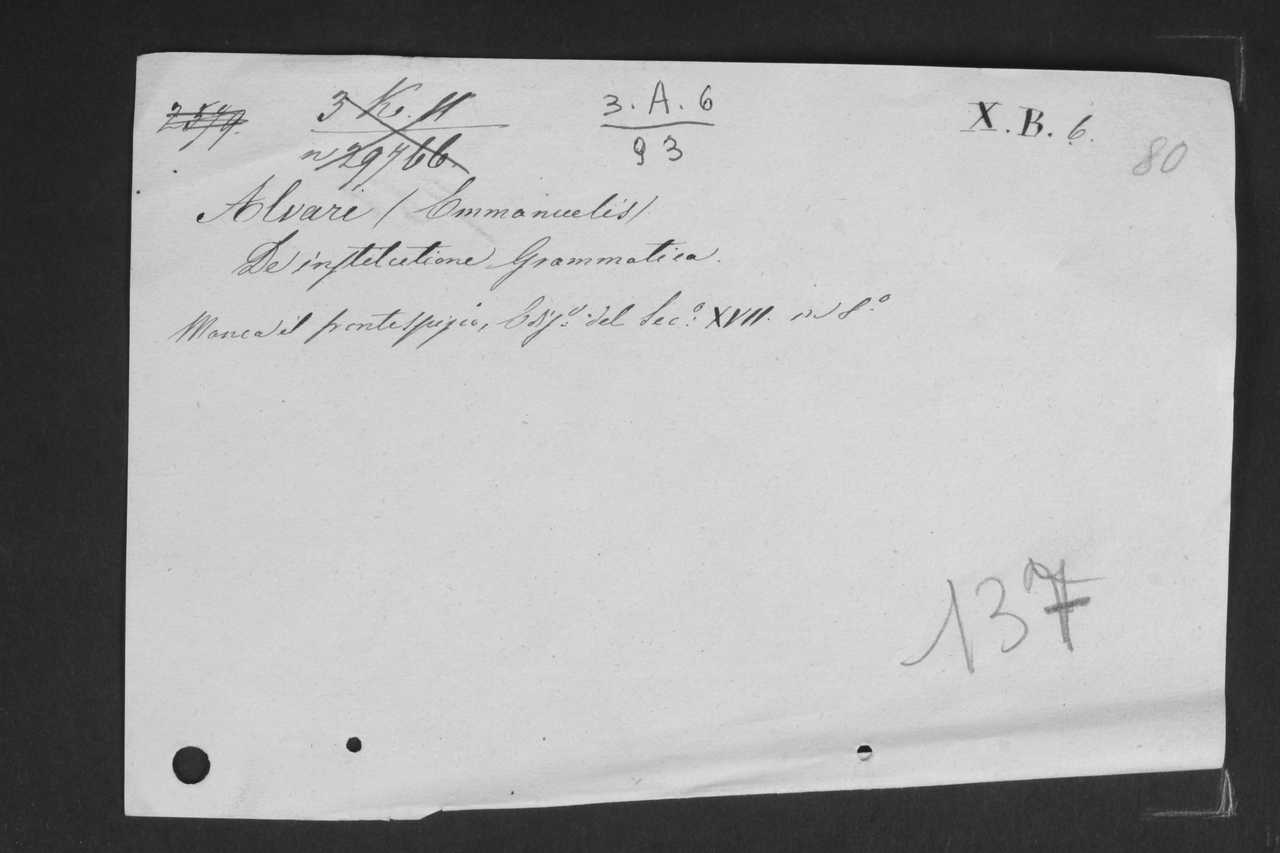 2579.
3 K. 11
n 29766.
3. A. 6
93
X. B. 6.
80
Alvari (Emmanuelis)
De institutione Grammatica.
Manca il frontespizio, Ediz.e del Sec.o XVII. in 8.o
137